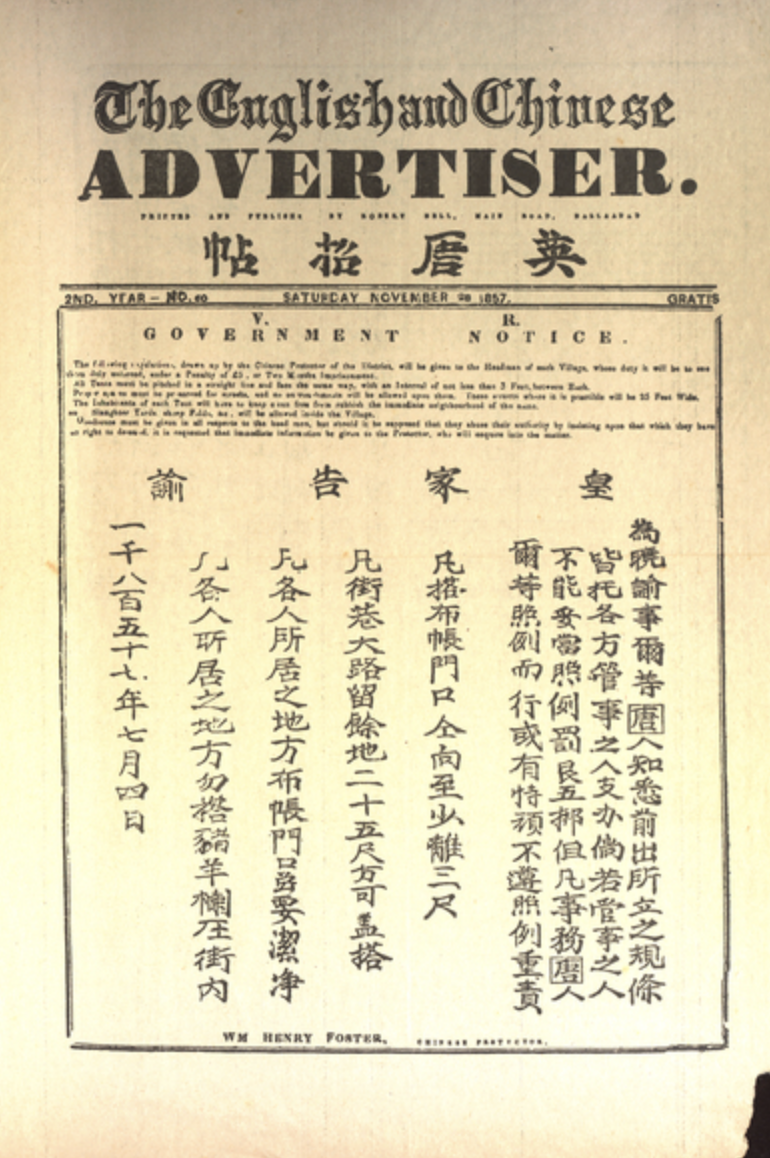 The English and Chinese
ADVERTISER.
PRINTED AND PUBLISHD BY ROBERT BELL, MAIN ROAD, BALLAARAD
英唐招帖
2ND. YEAR – NO. 60 SATURDAY NOVEMBER 28 1857. GRATIS
V. R.
GOVERNMENT NOTICE.
The following regulations, drawn up by the Chinese Protector of the District, will be given to the Headman of each Village, whose duty it will be to see
them duly enforced, under a Penalty of £5, or Two Months Imprisonment.
All Tents must be pitched in a straight line and face the same way, with an Interval of not less than 3 Feet, between Each.
Proper must be preserved for streets, and no encroachments will be allowed upon them. These streets where it is practible will be 25 Feet Wide.
The Inhabitants of each Tent will have to keep free from rubbish the immediate neighbourhood of the same.
no Slaughter Yards, sheep Folds, &c, will be allowed inside the Village.
Obedience must be given in all respects to the head men, but should it be supposed that they abuse their authority by insisting upon that which they have
no right to demand, it is requested that immediate information be given to the Protector, who will enquire into the matter.
皇家告諭
為曉諭事爾等唐人知悉前出所立之規條
皆托各方管事之人支办倘若管事之人
不能妥當照例罰艮五邦但凡事務唐人
爾等照例而行或有恃頑不遵照例重責
凡搭布帳門口仝向至少離三尺
凡街巷大路留餘地二十五尺方可盖搭
凡各人所居之地方布帳門口要潔净
凡各人所居之地方勿搭豬羊欄在街内
一千八百五十七年七月四日
WM HENRY FOSTER, CHINESE PROTECTOR.